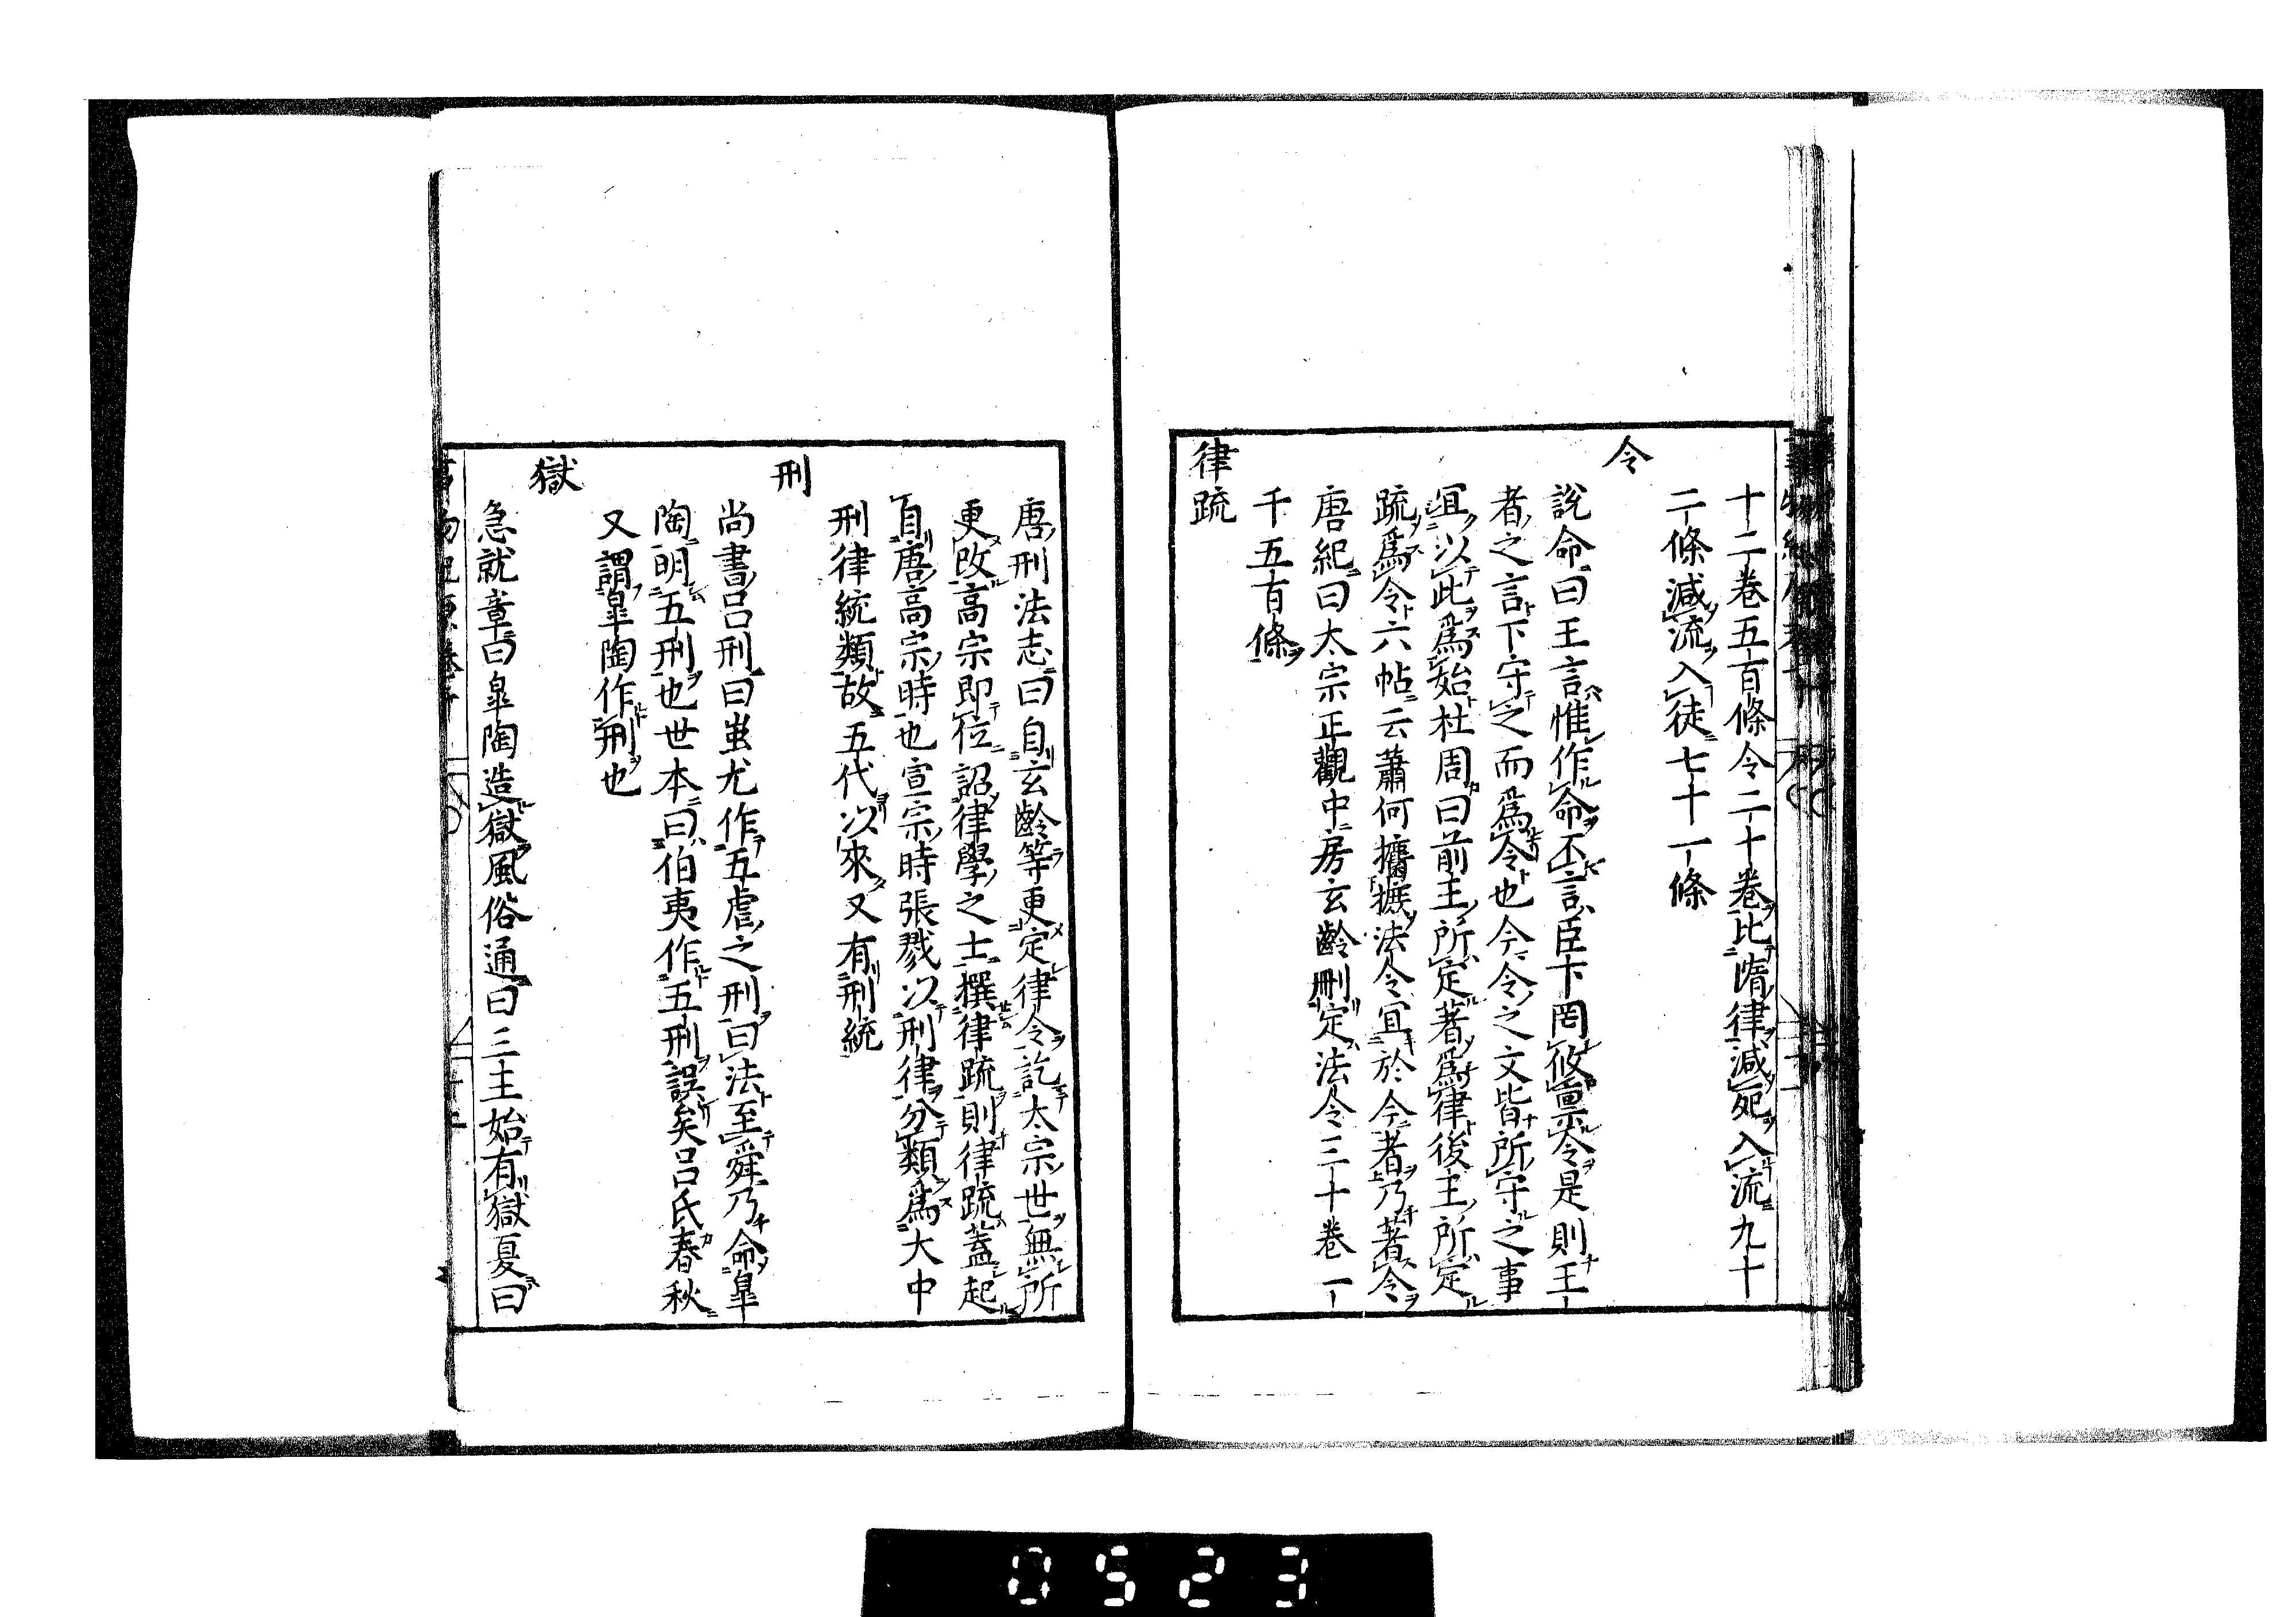 十二卷五百條令二十卷比隋律減死入流九十
二條減流入徒七十一條
令
說命曰王言惟作命不言臣下罔攸禀令是則王
者之言下守之而爲令也今令之文皆所守之事
宜以此爲始杜周曰前王所定著爲律後主所定
疏爲令六帖云蕭何攟摭法令宜於今者乃著令
唐紀曰太宗正觀中房玄齡刪定法令三十卷一
千五百條
律疏
唐刑法志曰自玄齡等更定律令訖太宗世無所
更改高宗即位詔律學之士撰律疏則律疏蓋起
自唐高宗時也宣宗時張戣以刑律分類爲大中
刑律統類故五代以來又有刑統
刑
尚書呂刑曰蚩尤作五虐之刑曰法至舜乃命皐
陶明五刑也世本曰伯夷作五刑誤矣呂氏春秋
又謂皐陶作刑也
獄
急就章曰皐陶造獄風俗通曰三王始有獄夏曰
0523